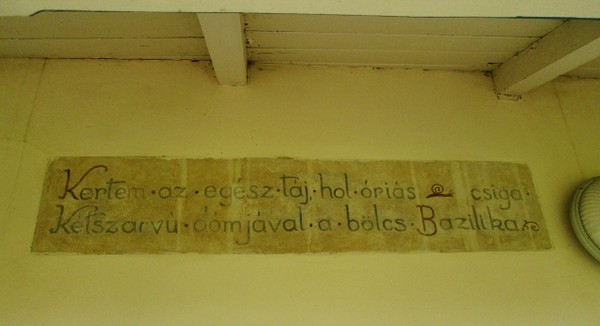 Kertem·az·egész·táj,·hol·óriás csiga·
Kétszarvú·dómjával·a·bölcs·Bazilika